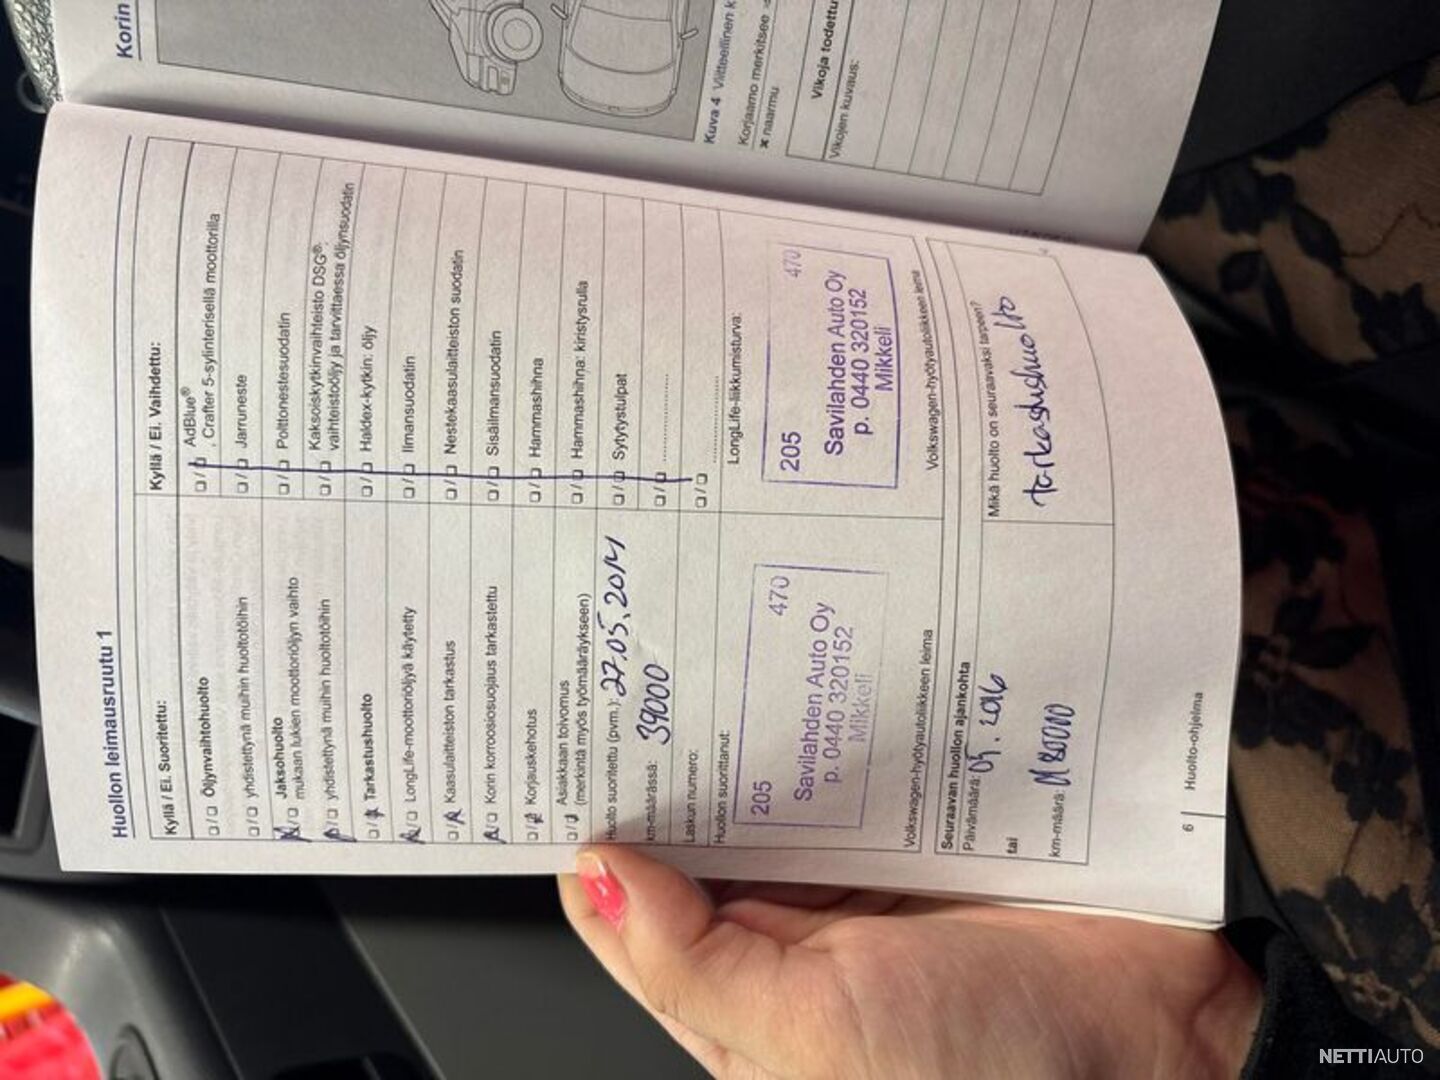 Korin
Kuva 4 Viitteellinen k
Korjaamo merkitsee
✖ naarmu
Vikoja todettu
Vikojen kuvaus:
Huollon leimausruutu 1
Kyllä / Ei. Suoritettu:
❑/❑ Öljynvaihtohuolto
❑/❑ yhdistettynä muihin huoltotöihin
Jaksohuolto
❑/❑ mukaan lukien moottoriöljyn vaihto
❑/❑ yhdistettynä muihin huoltotöihin
❑/❑ Tarkastushuolto
❑/❑ LongLife-moottoriöljyä käytetty
❑/❑ Kaasulaitteiston tarkastus
❑/❑ Korin korroosiosuojaus tarkastettu
❑/❑ Korjauskehotus
❑/❑ Asiakkaan toivomus
(merkintä myös työmääräykseen)
Kyllä / Ei. Vaihdettu:
❑/❑ AdBlue®
, Crafter 5-sylinterisellä moottorilla
❑/❑ Jarruneste
❑/❑ Polttonestesuodatin
❑/❑ Kaksoiskytkinvaihteisto DSG®:
vaihteistoöljy ja tarvittaessa öljynsuodatin
❑/❑ Haldex-kytkin: öljy
❑/❑ Ilmansuodatin
❑/❑ Nestekaasulaitteiston suodatin
❑/❑ Sisäilmansuodatin
❑/❑ Hammashihna
❑/❑ Hammashihna: kiristysrulla
❑/❑ Sytytystulpat
❑/❑ ....................
❑/❑ ....................
Huolto suoritettu (pvm.): 27.05.2014
km-määrässä: 39000
Laskun numero:
Huollon suorittanut:
205 470
Savilahden Auto Oy
p. 0440 320152
Mikkeli
Volkswagen-hyötyautoliikkeen leima
LongLife-liikkumisturva:
205 470
Savilahden Auto Oy
p. 0440 320152
Mikkeli
Volkswagen-hyötyautoliikkeen leima
Seuraavan huollon ajankohta
Päivämäärä: 05.2016
tai
km-määrä:
Mikä huolto on seuraavaksi tarpeen?
tarkastushuolto
6 Huolto-ohjelma
NETTIAUTO